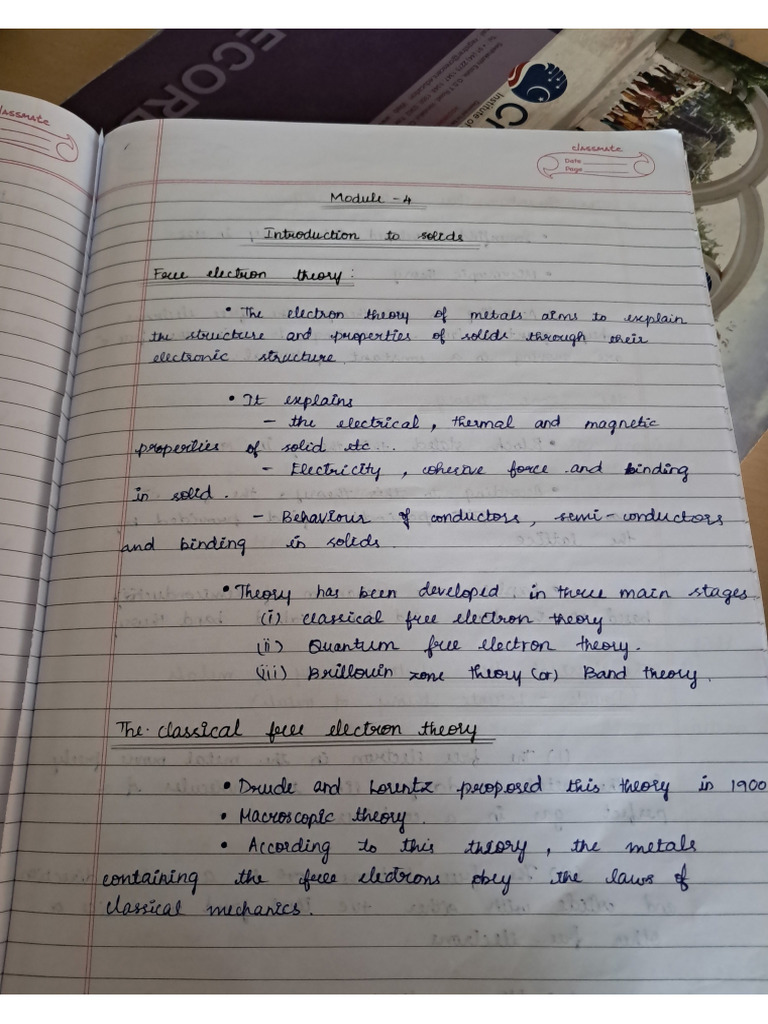 RECORD
CH
Institute of
classmate
classmate
Date
Page
Module - 4
Introduction to solids
Free electron theory:
• The electron theory of metals aims to explain
the structure and properties of solids through their
electronic structure.
• It explains
- the electrical, thermal and magnetic
properties of solid etc...
- Electricity, cohesive force and binding
in solid.
- Behaviour of conductors, semi-conductors
and binding in solids.
• Theory has been developed in three main stages
(i) classical free electron theory
(ii) Quantum free electron theory.
(iii) Brillouin zone theory (or) Band theory.
The classical free electron theory
• Drude and Lorentz proposed this theory in 1900
• Macroscopic theory.
• According to this theory, the metals
containing the free electrons obey the laws of
classical mechanics.